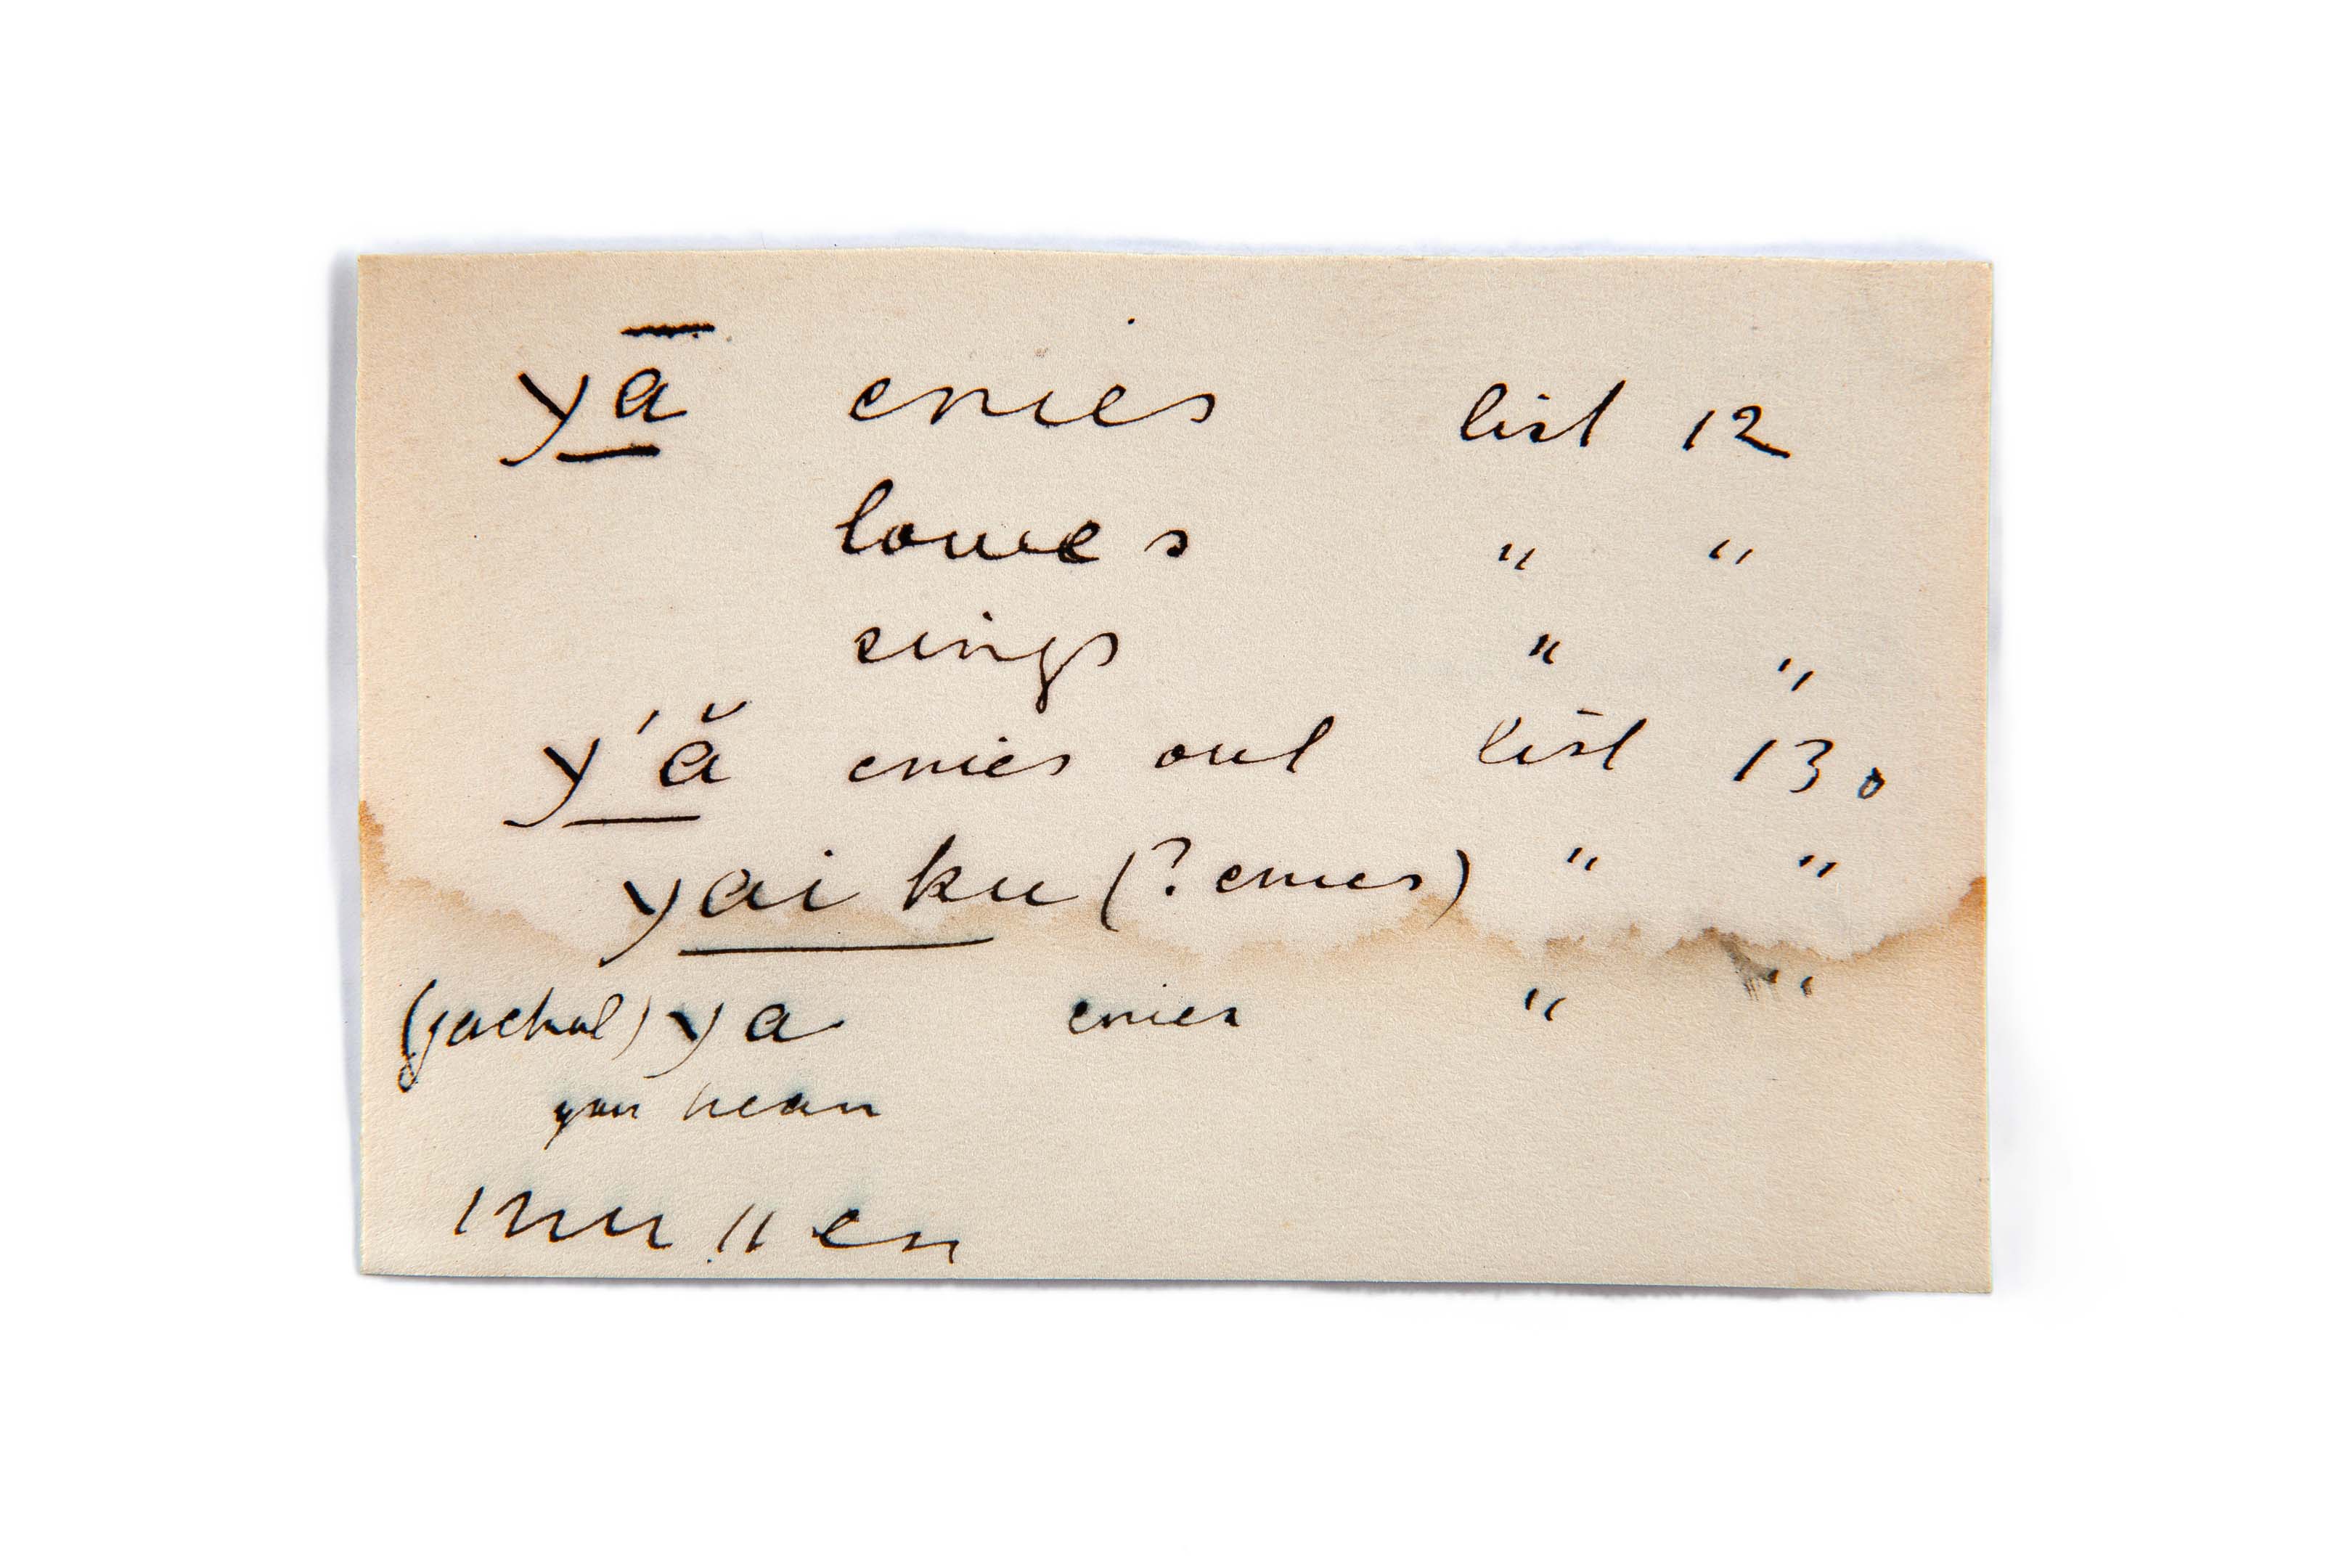 yā cries list 12
lowes " "
sings " "
y'ă cries out list 13.
yai ku (? cries) " "
(jackal) ya cries " "
you hear